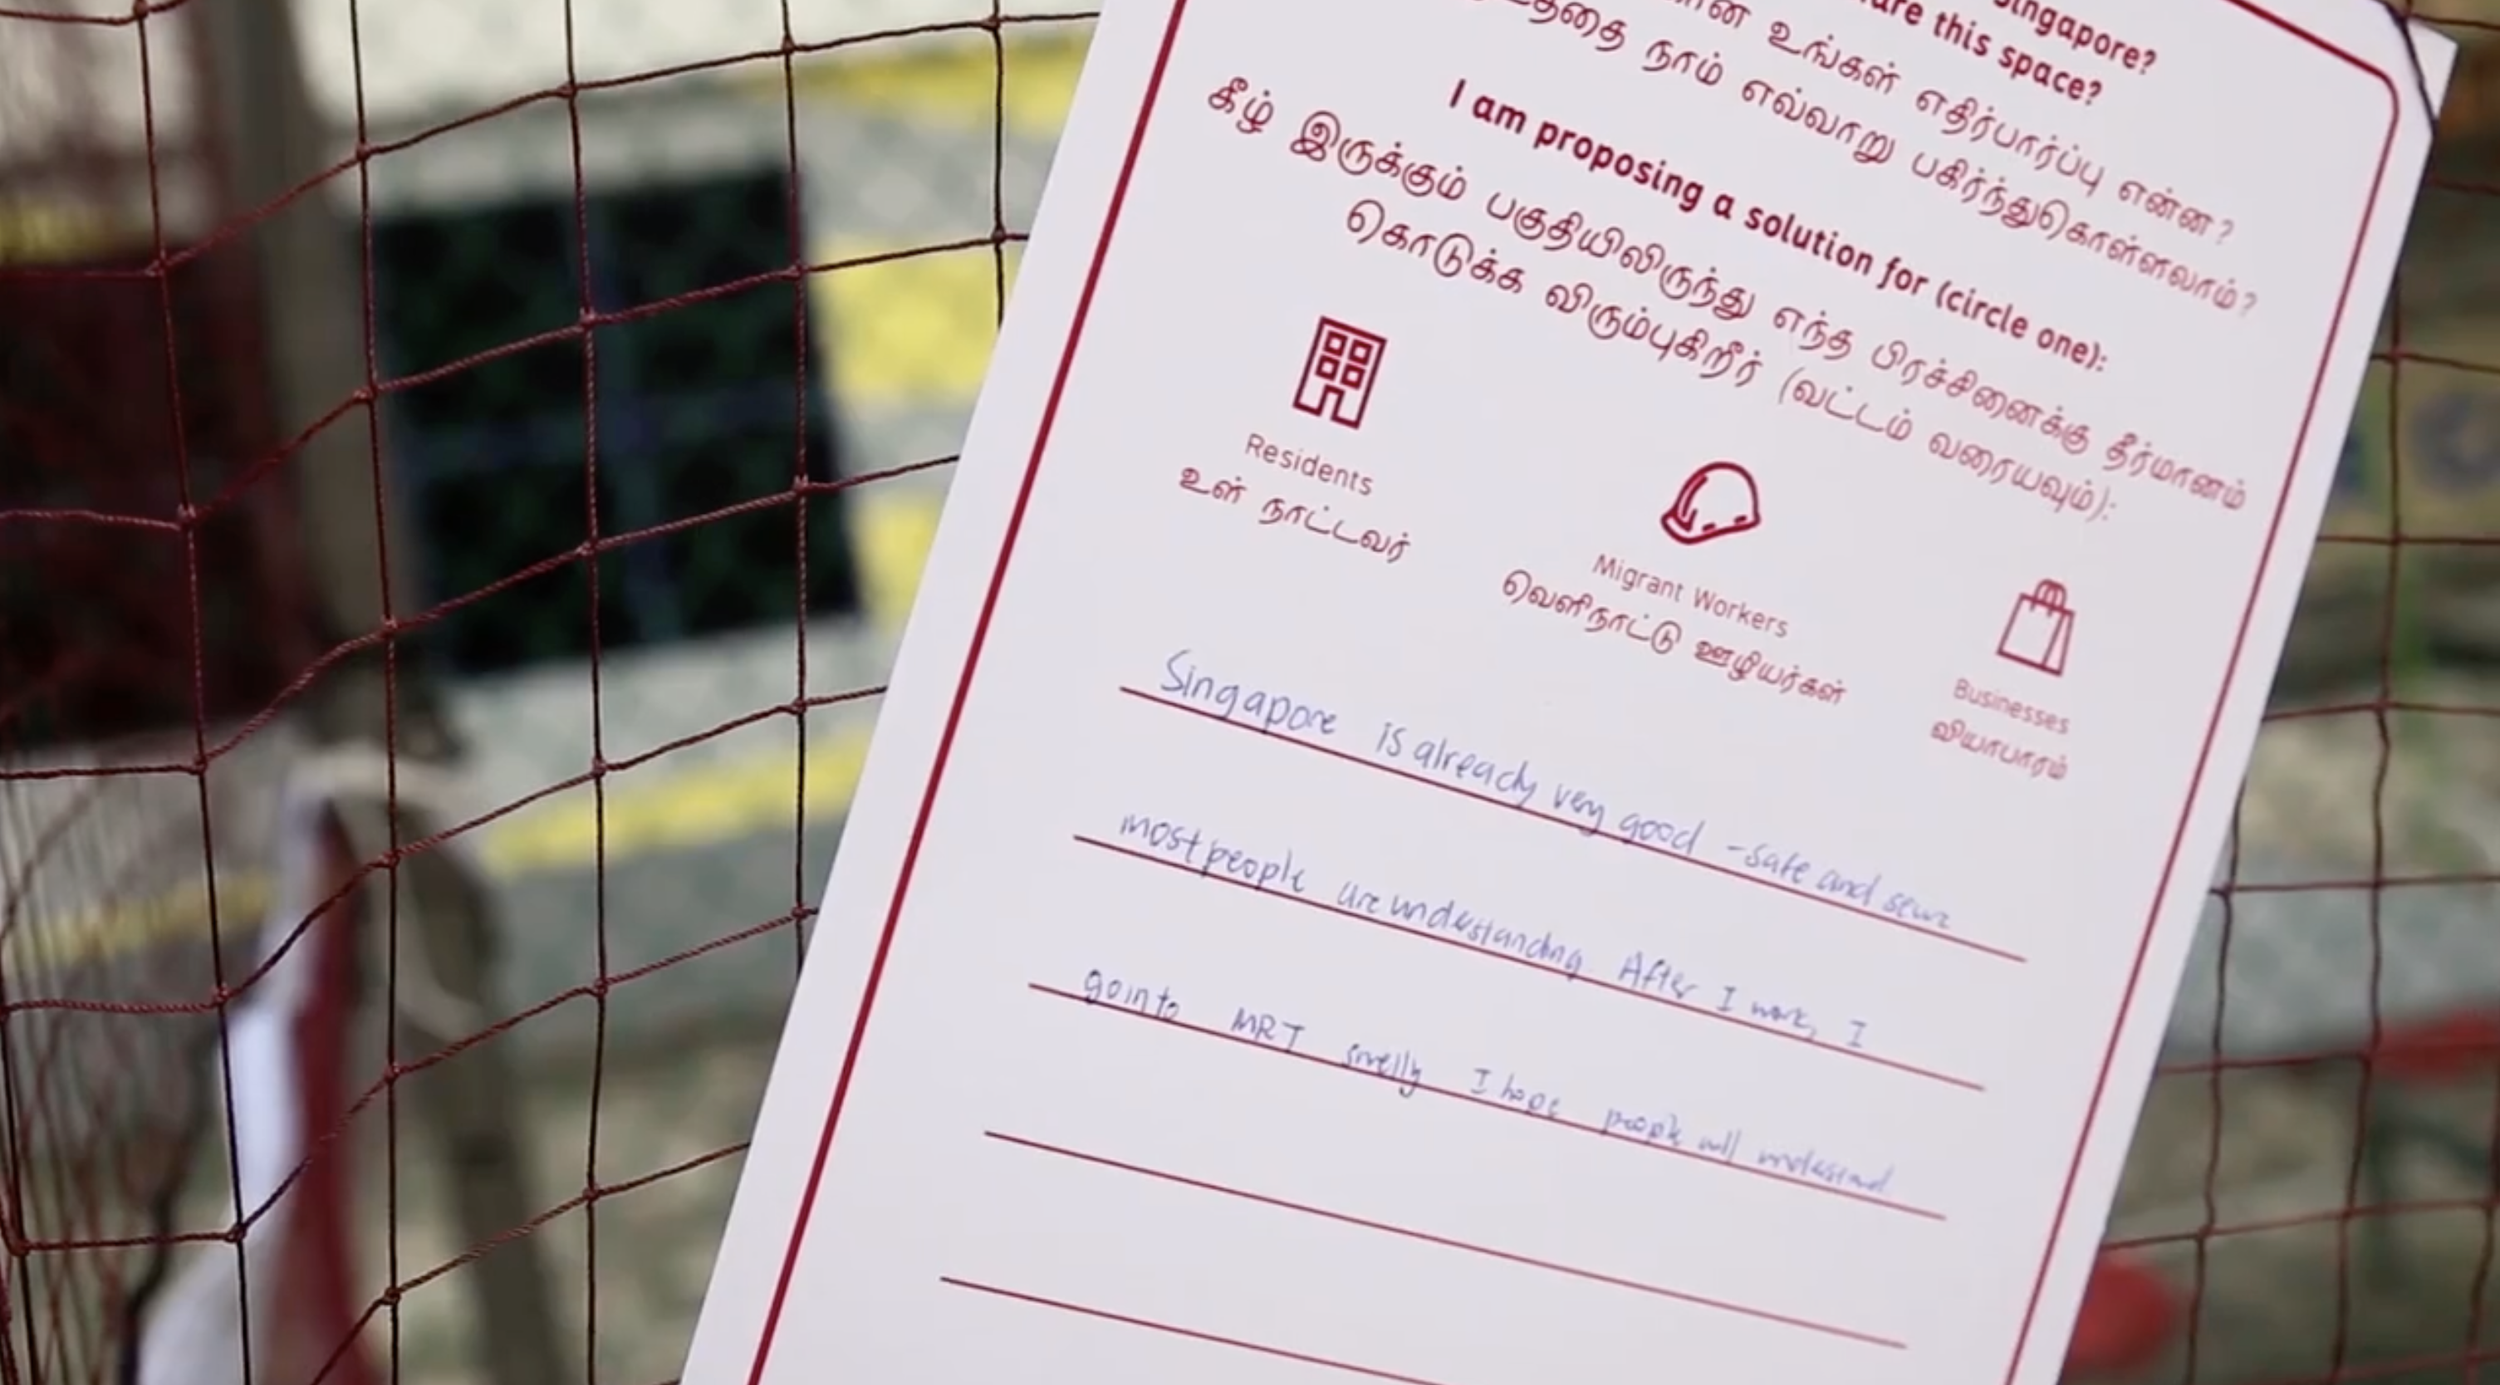 Singapore?
this space?
உங்கள் எதிர்பார்ப்பு என்ன?
நாம் எவ்வாறு பகிர்ந்துகொள்ளலாம்?
I am proposing a solution for (circle one):
கீழ் இருக்கும் பகுதியிலிருந்து எந்த பிரச்சினைக்கு தீர்மானம்
கொடுக்க விரும்புகிறீர் (வட்டம் வரையவும்):
Residents
உள் நாட்டவர்
Migrant Workers
வெளிநாட்டு ஊழியர்கள்
Businesses
வியாபாரம்
Singapore is already very good - safe and
most people are understanding. After I work, I
go into MRT smelly I hope people will understand